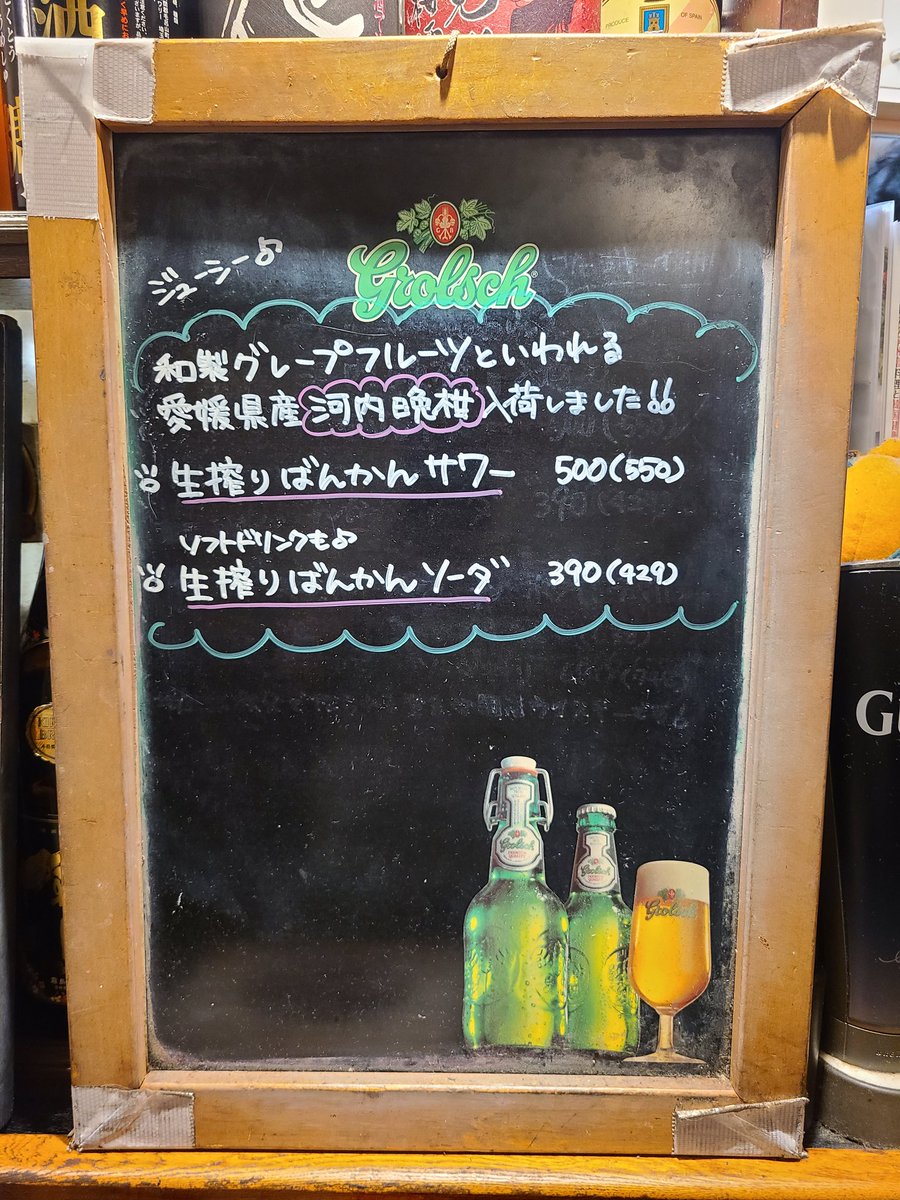 PRODUCE
OF SPAIN
Grolsch
ジューシー♪
和製グレープフルーツといわれる
愛媛県産 河内晩柑 入荷しました!!
生搾りばんかんサワー 500(550)
ソフトドリンクも♪
生搾りばんかんソーダ 390(429)
Grolsch
Grolsch
Grolsch